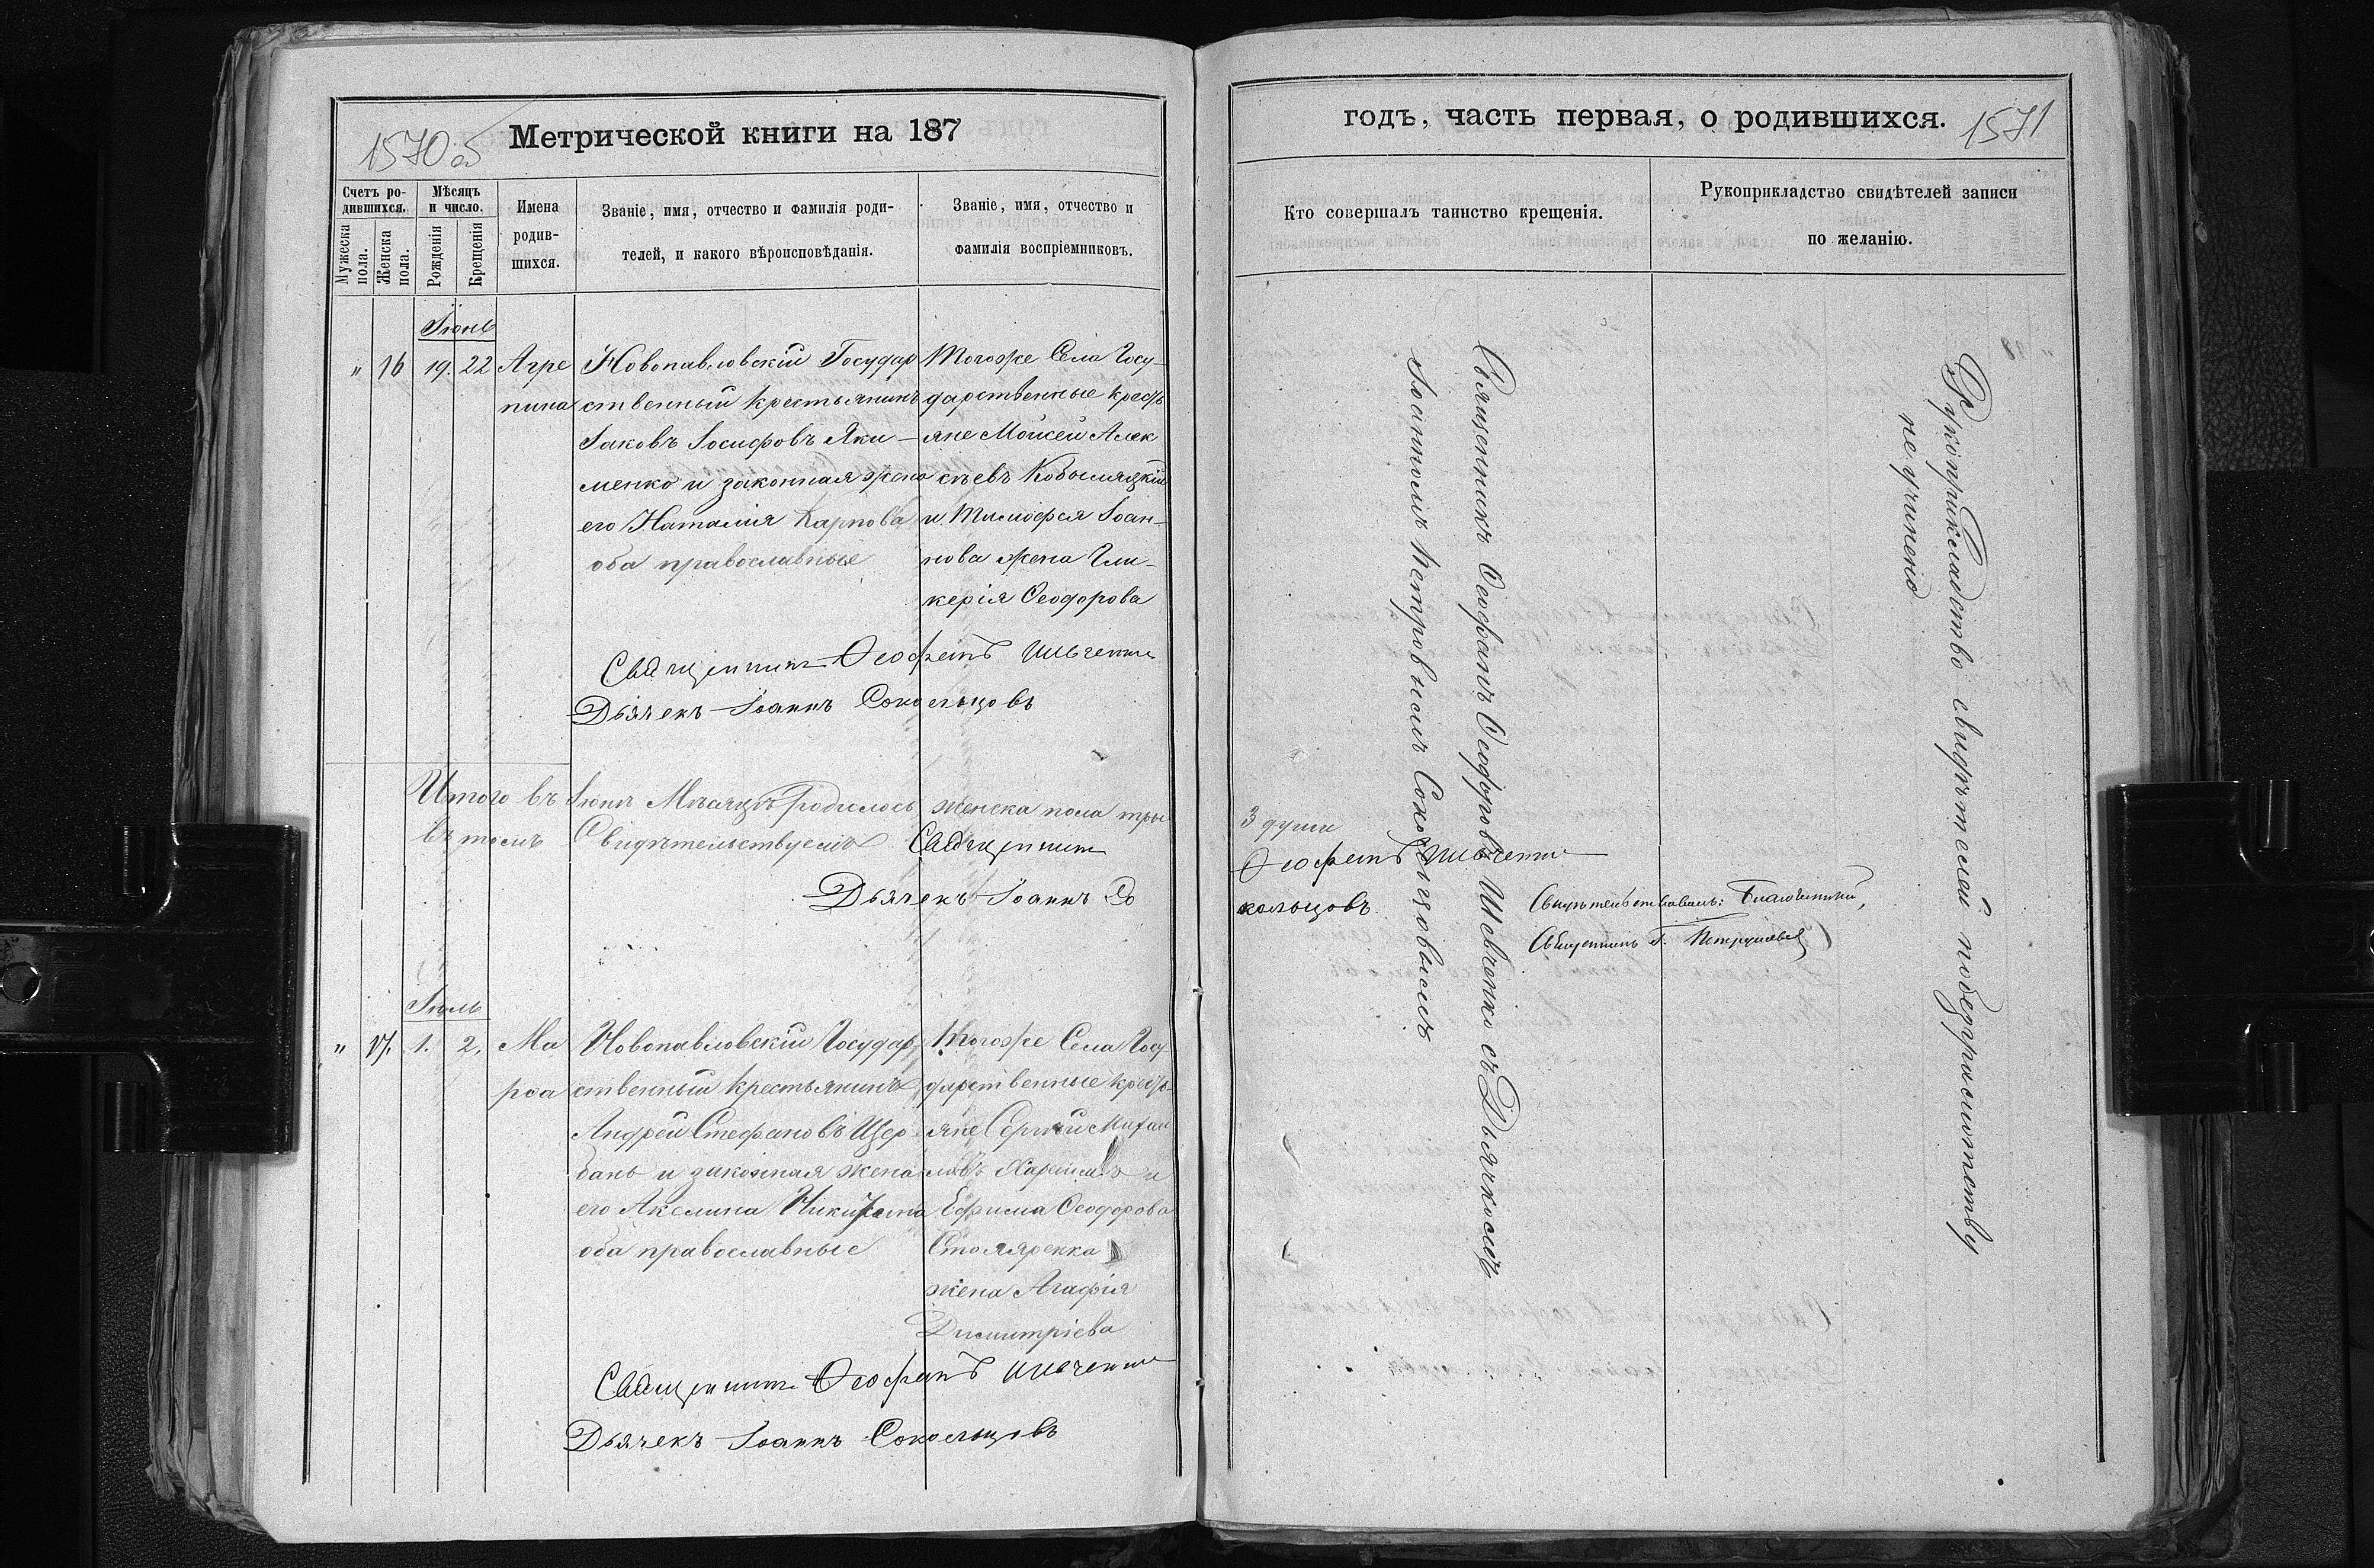 1570 об
Метрической книги на 187
Счетъ ро-
дившихся.
Мужеска
пола.
Женска
пола.
Мѣсяцъ
и число.
Рожденія
Крещенія
Имена
родив-
шихся.
Званіе, имя, отчество и фамилія роди-
телей, и какого вѣроисповѣданія.
Званіе, имя, отчество и
фамилія воспріемниковъ.
Іюнь
" 16 19. 22
Агре
пина
Новопавловскій Государ
ственный крестьянинъ
Іаковъ Іосифовъ Яки-
менко и законная жена
его Наталія Карпова
оба православные
Тогоже Села Госу-
дарственные кресть
яне Мойсей Алек
сѣевъ Кобыляцкій
и Тимофея Іоан-
нова жена Гли-
керія Ѳеодорова
Священникъ Ѳеофанъ Шевченко
Дьячекъ Іоаннъ Сокольцовъ
Итого въ Іюнѣ Мѣсяцѣ родилось женска пола три
Въ томъ Свидѣтельствуемъ Священникъ
Дьячекъ Іоаннъ Со
Іюль
" 17. 1. 2.
Ма
рѳа
Новопавловскій Государ
ственный крестьянинъ
Андрей Стефановъ Щер
бань и законная жена
его Акелина Никитина
оба православные
Тогоже Села Госу-
дарственные кресть-
яне Сергѣй Михаи
ловъ и
Ефима Ѳеодорова
Столяренка
жена Агафія
Димитріева
Священникъ Ѳеофанъ Шевченко
Дьячекъ Іоаннъ Сокольцовъ
годъ, часть первая, о родившихся.
1571
Кто совершалъ таинство крещенія.
Рукоприкладство свидѣтелей записи
по желанію.
Священникъ Ѳеофанъ Ѳеодоровъ Шевченко съ Дьячкомъ
Іоанномъ Петровымъ Сокольцовымъ
Рукоприкладство свидѣтелей по безграмотству
не учинено
3 души
Ѳеофанъ Шевченко
кольцовъ
Свидѣтельствовалъ: Благочинный,
Священникъ Г.